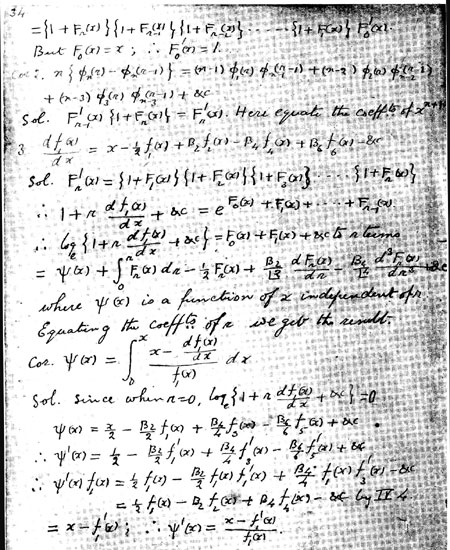 34
= {1 + Fₙ(x)} {1 + Fₙ₋₁(x)} {1 + Fₙ₋₂(x)} ...... {1 + F₁(x)} F₀'(x).
But F₀(x) = x ; ∴ F₀'(x) = 1.
Cor 2. n {φₙ(n) - φₙ(n-1)} = (n-1) φ₁(n) φₙ₋₁(n-1) + (n-2) φ₂(n) φₙ₋₂(n-1)
+ (n-3) φ₃(n) φₙ₋₃(n-1) + &c
Sol. F'ₙ₋₁(x) {1 + Fₙ(x)} = F'ₙ(x). Here equate the coeffts of xⁿ⁺¹
3. df₁(x)/dx = x - ½ f₁(x) + B₂ f₂(x) - B₄ f₄(x) + B₆ f₆(x) - &c
Sol. F'ₙ(x) = {1 + F₁(x)} {1 + F₂(x)} {1 + F₃(x)} ...... {1 + Fₙ(x)}
∴ 1 + n df₁(x)/dx + &c = e^{F₀(x) + F₁(x) + ... + Fₙ₋₁(x)}
∴ logₑ {1 + n df₁(x)/dx + &c} = F₀(x) + F₁(x) + &c to n terms
= ψ(x) + ∫₀ⁿ Fₙ(x) dn - ½ Fₙ(x) + B₂/|2 dFₙ(x)/dn - B₄/|4 d³Fₙ(x)/dn³ + &c
where ψ(x) is a function of x independent of n.
Equating the coeffts of n we get the result.
Cor. ψ(x) = ∫₀ˣ (x - df₁(x)/dx)/f₁(x) dx
Sol. Since when n=0, logₑ {1 + n df₁(x)/dx + &c} = 0
ψ(x) = x/2 - B₂/2 f₁(x) + B₄/4 f₃(x) - B₆/6 f₅(x) + &c.
∴ ψ'(x) = ½ - B₂/2 f₁'(x) + B₄/4 f₃'(x) - B₆/6 f₅'(x) + &c
∴ ψ'(x) f₁(x) = ½ f₁(x) - B₂/2 f₁(x) f₁'(x) + B₄/4 f₁(x) f₃'(x) - &c
= ½ f₁(x) - B₂ f₂(x) + B₄ f₄(x) - &c by IV 4
= x - f₁'(x) ; ∴ ψ'(x) = (x - f₁'(x))/f₁(x).